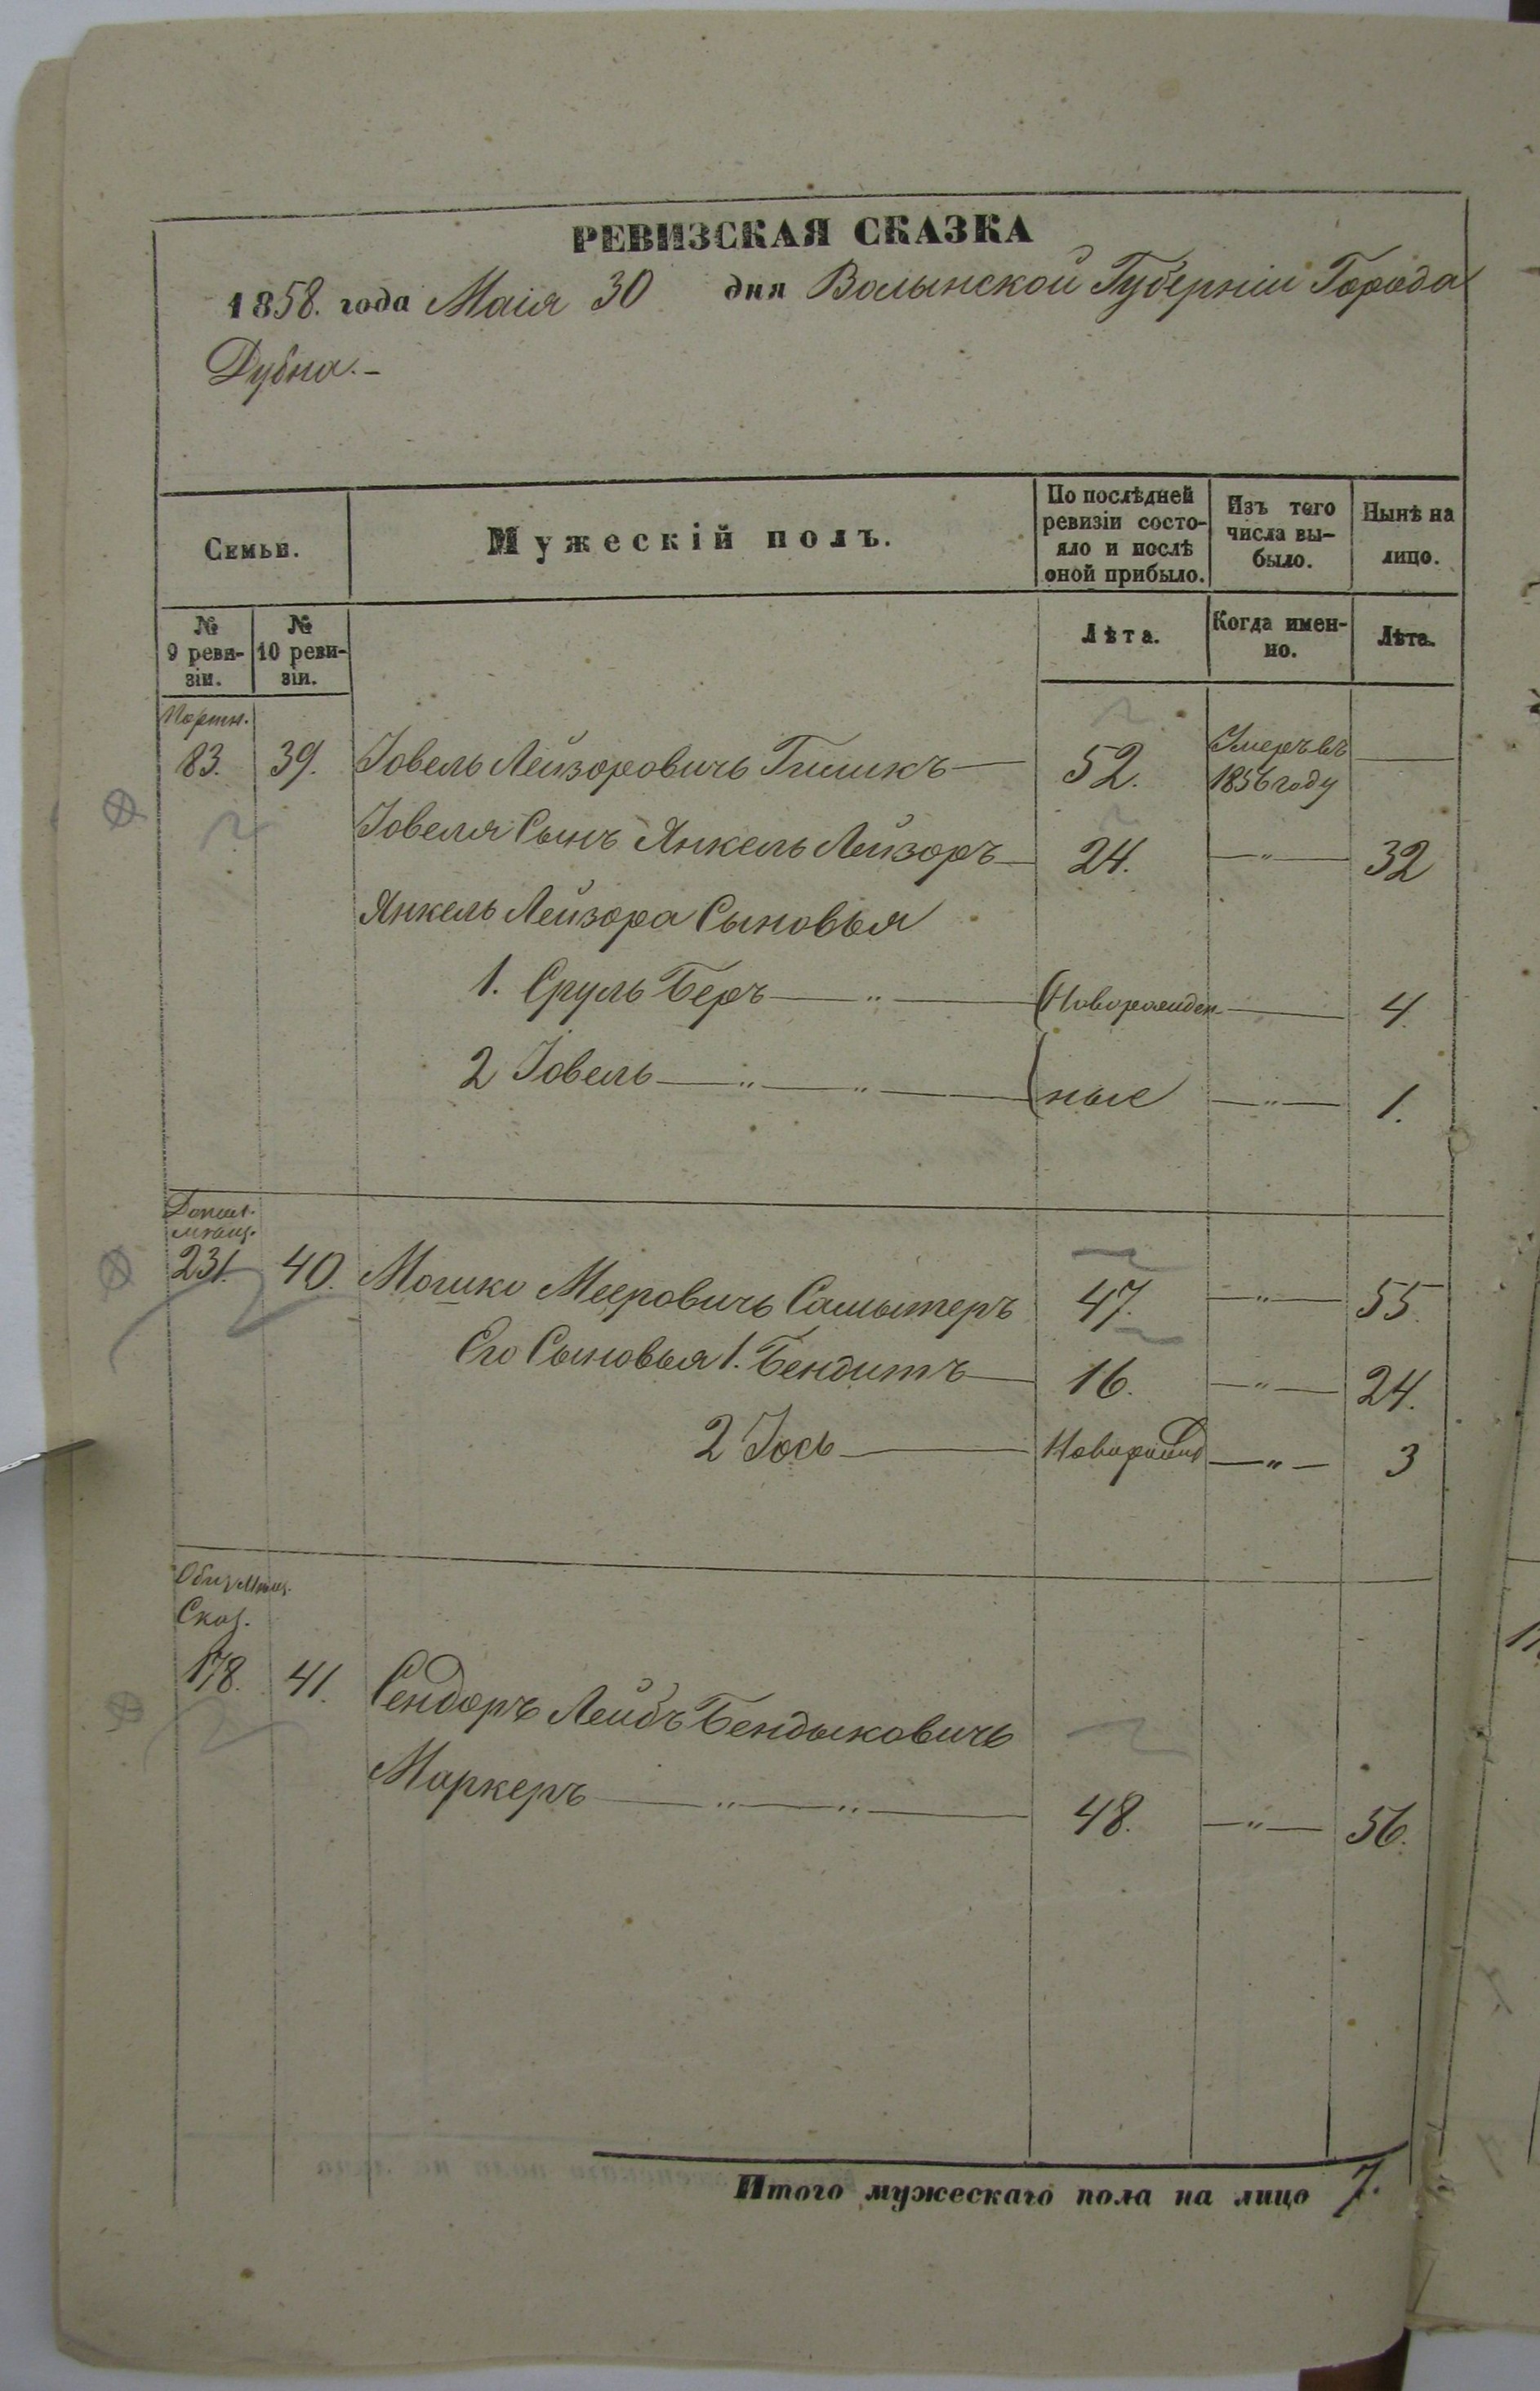 РЕВИЗСКАЯ СКАЗКА
1858. года Маія 30 дня Волынской Губерніи Города
Дубна.-
Семьи.
Мужескій полъ.
По послѣдней ревизіи состо-яло и послѣ оной прибыло.
Изъ того числа вы-было.
Нынѣ на лицо.
№ 9 реви-зіи.
№ 10 реви-зіи.
Лѣта.
Когда имен-но.
Лѣта.
Портн.
83. 39. Іовель Лейзоровичь 52. Умеръ въ 1856 году
Іовеля Сынъ Янкель Лейзоръ 24. 32
Янкель Лейзора Сыновья
1. Сруль Беръ Новорожден- 4.
2 Іовель ные 1.
231. 40. Мошко Мееровичь 47. 55.
Его Сыновья 1. Бендитъ 16. 24.
2 Іось Новорожд 3
Сказ.
178. 41. Сендоръ Лейбъ Бендыковичь
Маркеръ 48. 56.
Итого мужескаго пола на лицо 7.